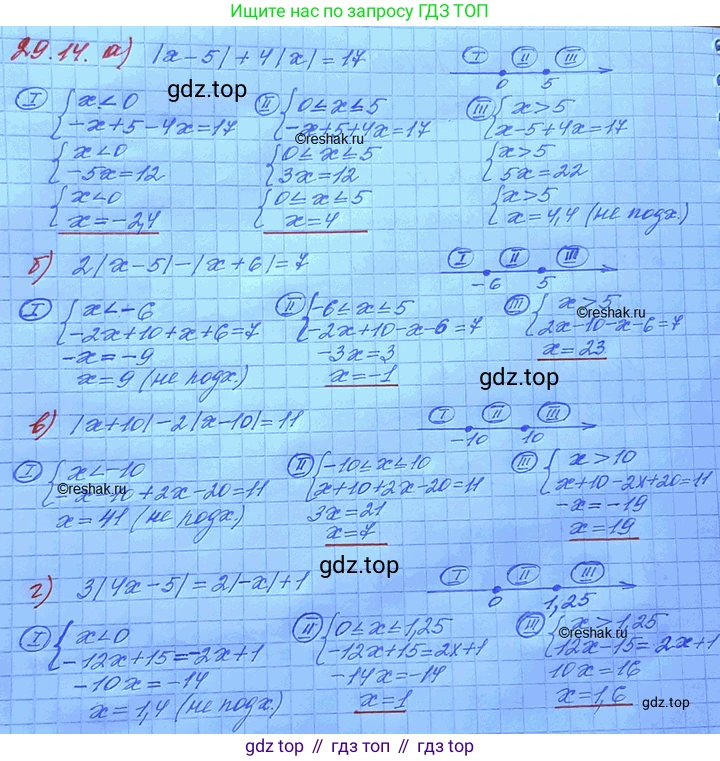 Ищите нас по запросу ГДЗ ТОП
29.14. а) |x-5|+4|x|=17
I II III
0 5
gdz.top
I { x<0
-x+5-4x=17
{ x<0
-5x=12
{ x<0
x=-2,4
II { 0≤x≤5
-x+5+4x=17
©reshak.ru
{ 0≤x≤5
3x=12
{ 0≤x≤5
x=4
III { x>5
x-5+4x=17
{ x>5
5x=22
{ x>5
x=4,4 (не подх.)
б) 2|x-5|-|x+6|=7
I II III
-6 5
I { x<-6
-2x+10+x+6=7
-x=-9
x=9 (не подх.)
II { -6≤x≤5
-2x+10-x-6=7
-3x=3
x=-1
III { x>5
©reshak.ru
2x-10-x-6=7
x=23
gdz.top
в) |x+10|-2|x-10|=11
I II III
-10 10
I { x<-10
-x-10+2x-20=11
©reshak.ru
x=41 (не подх.)
II { -10≤x≤10
x+10+2x-20=11
3x=21
x=7
III { x>10
x+10-2x+20=11
-x=-19
x=19
gdz.top
г) 3|4x-5|=2|-x|+1
I II III
0 1,25
I { x<0
-12x+15=-2x+1
-10x=-14
x=1,4 (не подх.)
II { 0≤x≤1,25
-12x+15=2x+1
-14x=-14
x=1
III { x>1,25
©reshak.ru
12x-15=2x+1
10x=16
x=1,6
gdz.top
gdz.top // гдз.топ // gdz.top